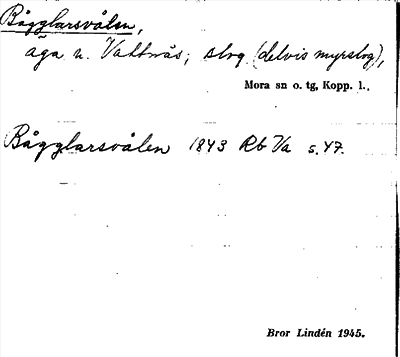 Bågglarsvålen,
äga n. Vattnäs; skog (delvis myrskog),
Mora sn o. tg, Kopp. l.
Bågglarsvålen 1843 Rb Va s. 47.
Bror Lindén 1945.